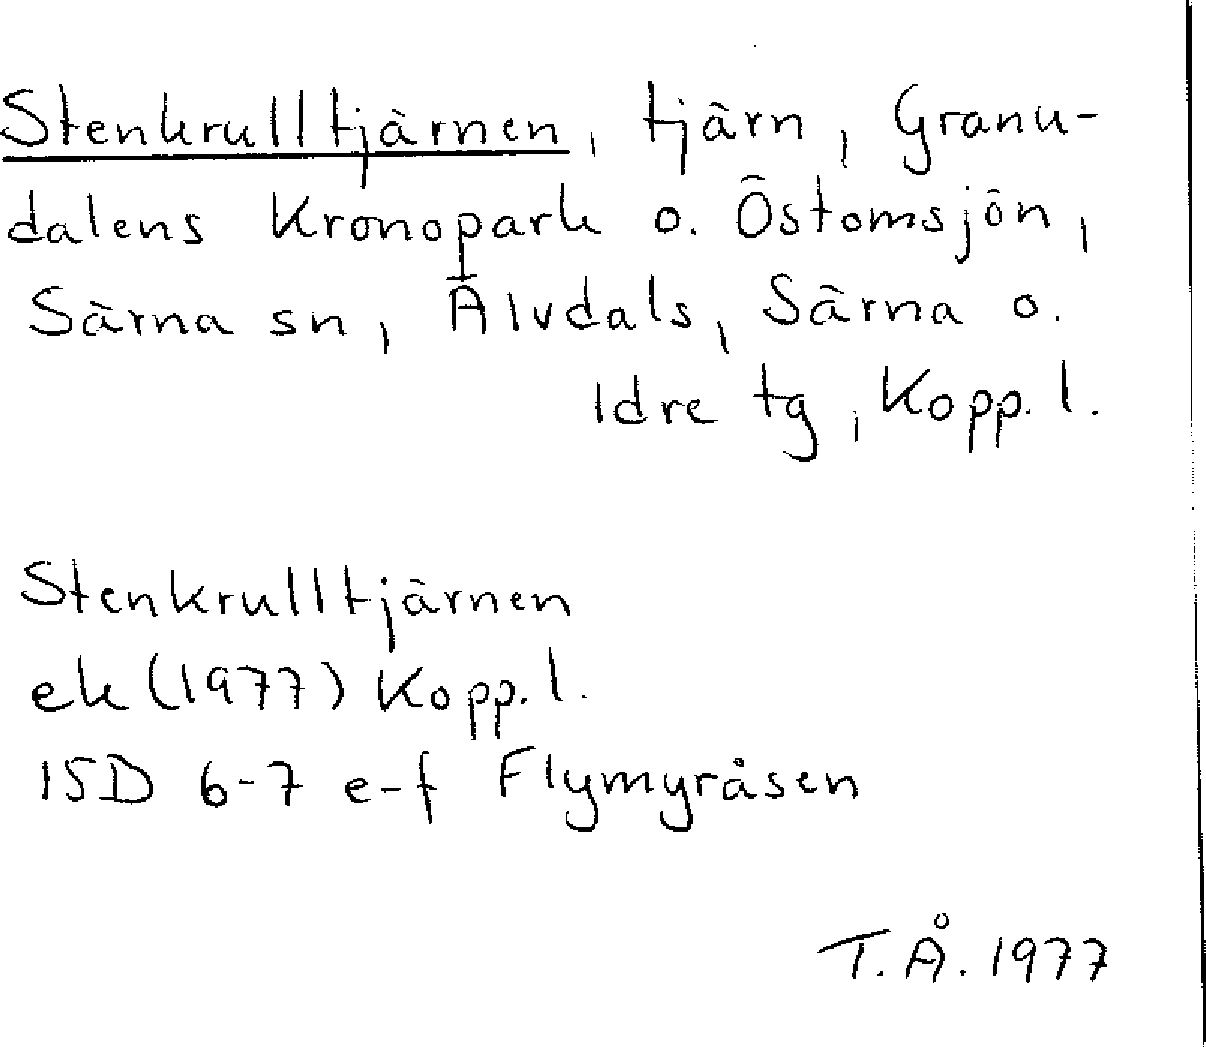 Stenkrulltjärnen, tjärn, Granu-
dalens Kronopark o. Östomsjön,
Särna sn, Älvdals, Särna o.
Idre tg, Kopp. l.
Stenkrulltjärnen
ek (1977) Kopp. l.
15D 6-7 e-f Flymyråsen
T. Å. 1977